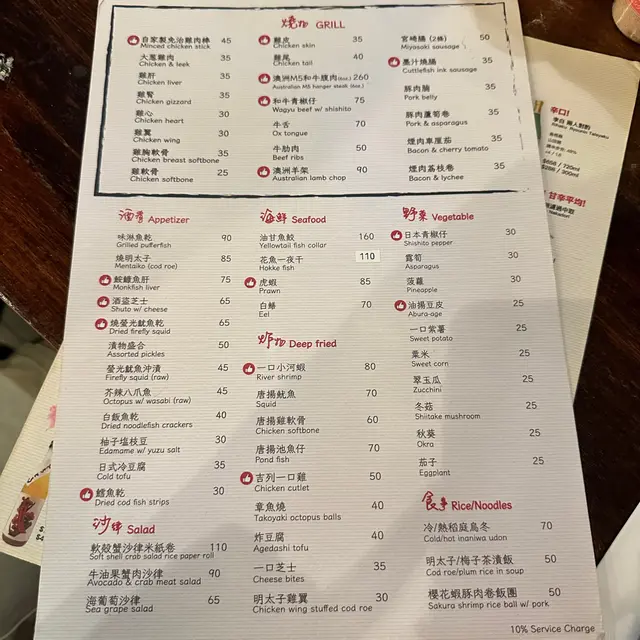 燒物 GRILL
自家製免治雞肉棒 45
Minced chicken stick
大葱雞肉 35
Chicken & leek
雞肝 35
Chicken liver
雞腎 35
Chicken gizzard
雞心 30
Chicken heart
雞翼 30
Chicken wing
雞胸軟骨 35
Chicken breast softbone
雞軟骨 25
Chicken softbone
雞皮 35
Chicken skin
雞尾 40
Chicken tail
澳洲M5和牛腹肉(6oz.) 260
Australian M5 hanger steak (6oz.)
和牛青椒仔 75
Wagyu beef w/ shishito
牛舌 70
Ox tongue
牛肋肉 50
Beef ribs
澳洲羊架 90
Australian lamb chop
宮崎腸 (2條) 50
Miyasaki sausage
墨汁燒腸 35
Cuttlefish ink sausage
豚肉腩 35
Pork belly
豚肉蘆荀卷 35
Pork & asparagus
煙肉車厘茄 35
Bacon & cherry tomato
煙肉荔枝卷 35
Bacon & lychee
酒肴 Appetizer
味淋魚乾 90
Grilled pufferfish
燒明太子 85
Mentaiko (cod roe)
鮟鱇魚肝 75
Monkfish liver
酒盜芝士 65
Shuto w/ cheese
燒螢光魷魚乾 65
Dried firefly squid
漬物盛合 50
Assorted pickles
螢光魷魚沖漬 45
Firefly squid (raw)
芥辣八爪魚 45
Octopus w/ wasabi (raw)
白飯魚乾 40
Dried noodlefish crackers
柚子塩枝豆 30
Edamame w/ yuzu salt
日式冷豆腐 35
Cold tofu
鱈魚乾 30
Dried cod fish strips
沙律 Salad
軟殼蟹沙律米紙卷 110
Soft shell crab salad rice paper roll
牛油果蟹肉沙律 90
Avocado & crab meat salad
海葡萄沙律 65
Sea grape salad
海鮮 Seafood
油甘魚鮫 160
Yellowtail fish collar
花魚一夜干 110
Hokke fish
虎蝦 85
Prawn
白鱔 70
Eel
炸物 Deep fried
一口小河蝦 80
River shrimp
唐揚魷魚 70
Squid
唐揚雞軟骨 60
Chicken softbone
唐揚池魚仔 70
Pond fish
吉列一口雞 50
Chicken cutlet
章魚燒 40
Takoyaki octopus balls
炸豆腐 40
Agedashi tofu
一口芝士 35
Cheese bites
明太子雞翼 30
Chicken wing stuffed cod roe
野菜 Vegetable
日本青椒仔 30
Shishito pepper
露荀 30
Asparagus
菠蘿 30
Pineapple
油揚豆皮 25
Abura-age
一口紫薯 25
Sweet potato
粟米 25
Sweet corn
翠玉瓜 25
Zucchini
冬菇 25
Shiitake mushroom
秋葵 25
Okra
茄子 25
Eggplant
食事 Rice/Noodles
冷/熱稻庭烏冬 70
Cold/hot inaniwa udon
明太子/梅子茶漬飯 50
Cod roe/plum rice in soup
櫻花蝦豚肉卷飯團 50
Sakura shrimp rice ball w/ pork
10% Service Charge
辛口!
$658 / 720ml
$288 / 300ml
甘辛平均!